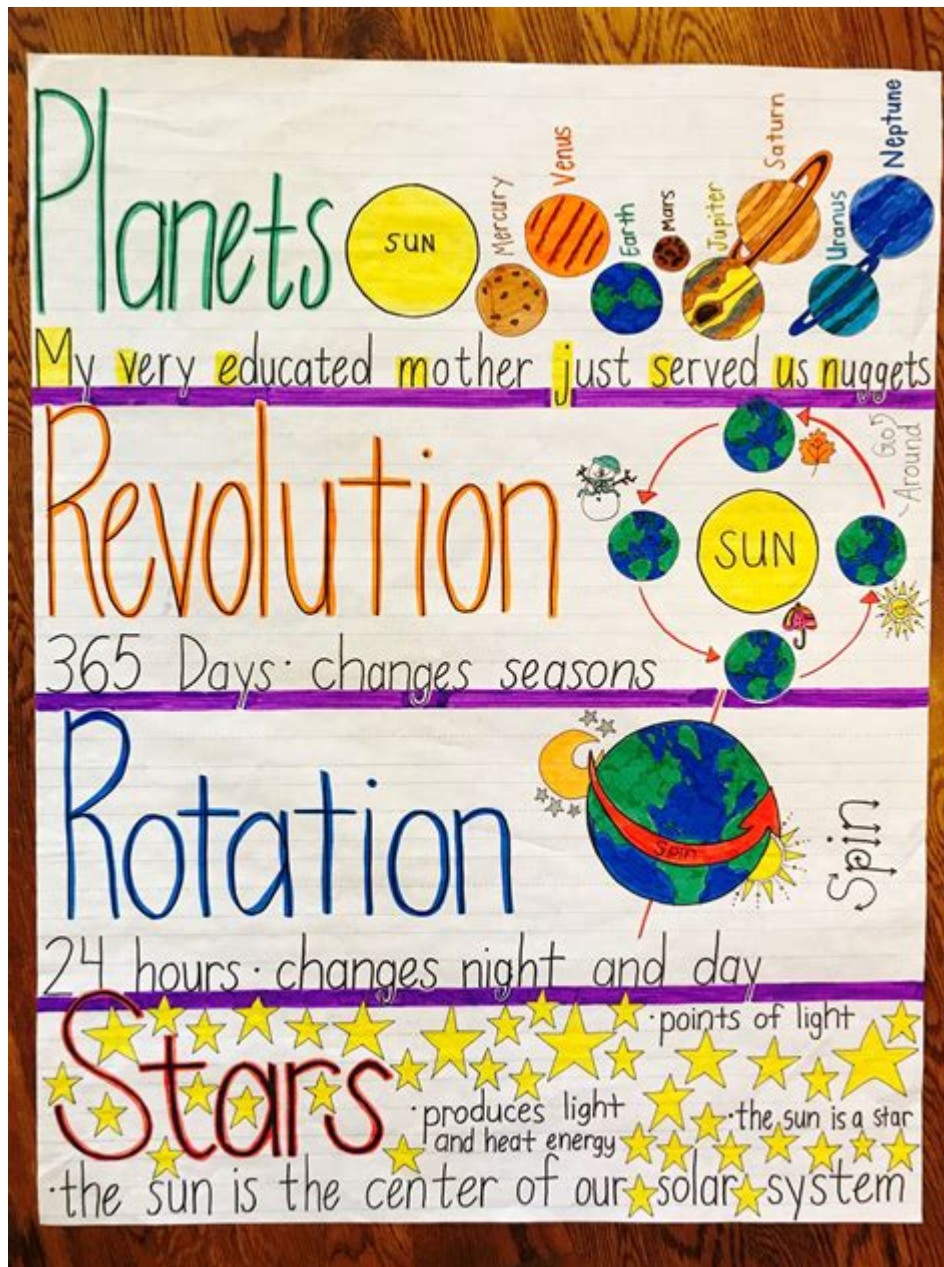 Planets
SUN
Mercury
Venus
Earth
Mars
Jupiter
Saturn
Uranus
Neptune
My very educated mother just served us nuggets
Revolution
Go
Around
SUN
365 Days· changes seasons
Rotation
Spin
Spin
24 hours· changes night and day
Stars
·points of light
·produces light
and heat energy
·the sun is a star
·the sun is the center of our solar system